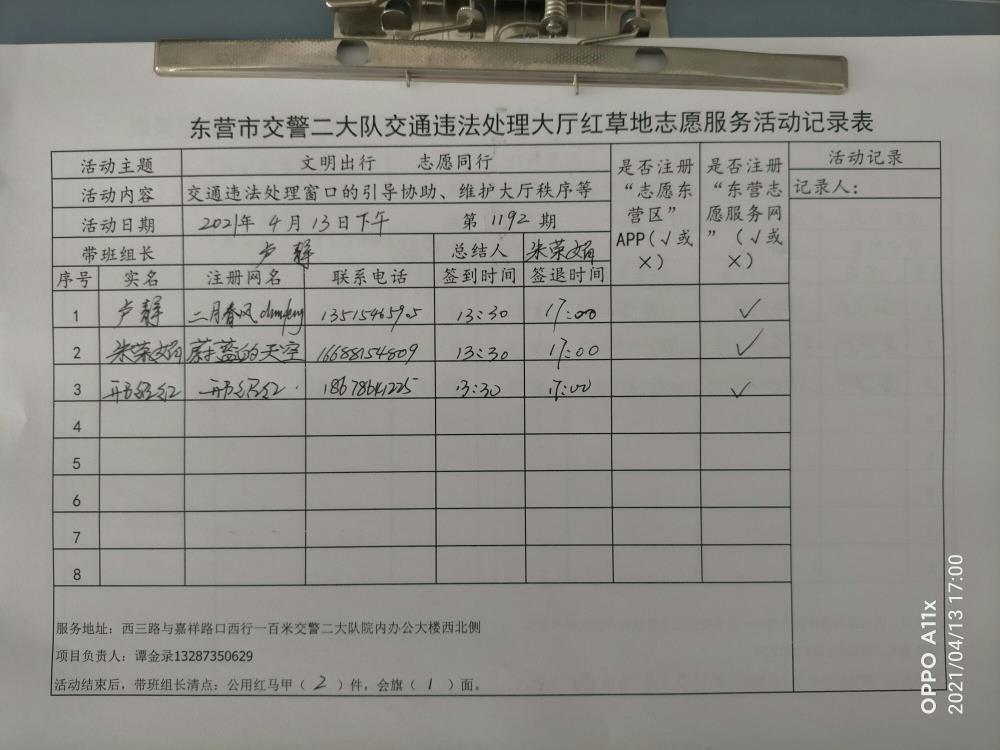 东营市交警二大队交通违法处理大厅红草地志愿服务活动记录表
活动主题 文明出行 志愿同行 是否注册“志愿东营区”APP(√或×) 是否注册“东营志愿服务网”（√或×） 活动记录
活动内容 交通违法处理窗口的引导协助、维护大厅秩序等 记录人：
活动日期 2021年4月13日下午 第1192期
带班组长 卢静 总结人 朱荣娟
序号 实名 注册网名 联系电话 签到时间 签退时间
1 卢静 二月春风 13515465905 13:30 17:00 √
2 朱荣娟 蔚蓝的天空 16688154809 13:30 17:00 √
3 18678641225 13:30 17:00 √
4
5
6
7
8
服务地址：西三路与嘉祥路口西行一百米交警二大队院内办公大楼西北侧
项目负责人：谭金录13287350629
活动结束后，带班组长清点：公用红马甲（2）件，会旗（1）面。
OPPO A11x
2021/04/13 17:00